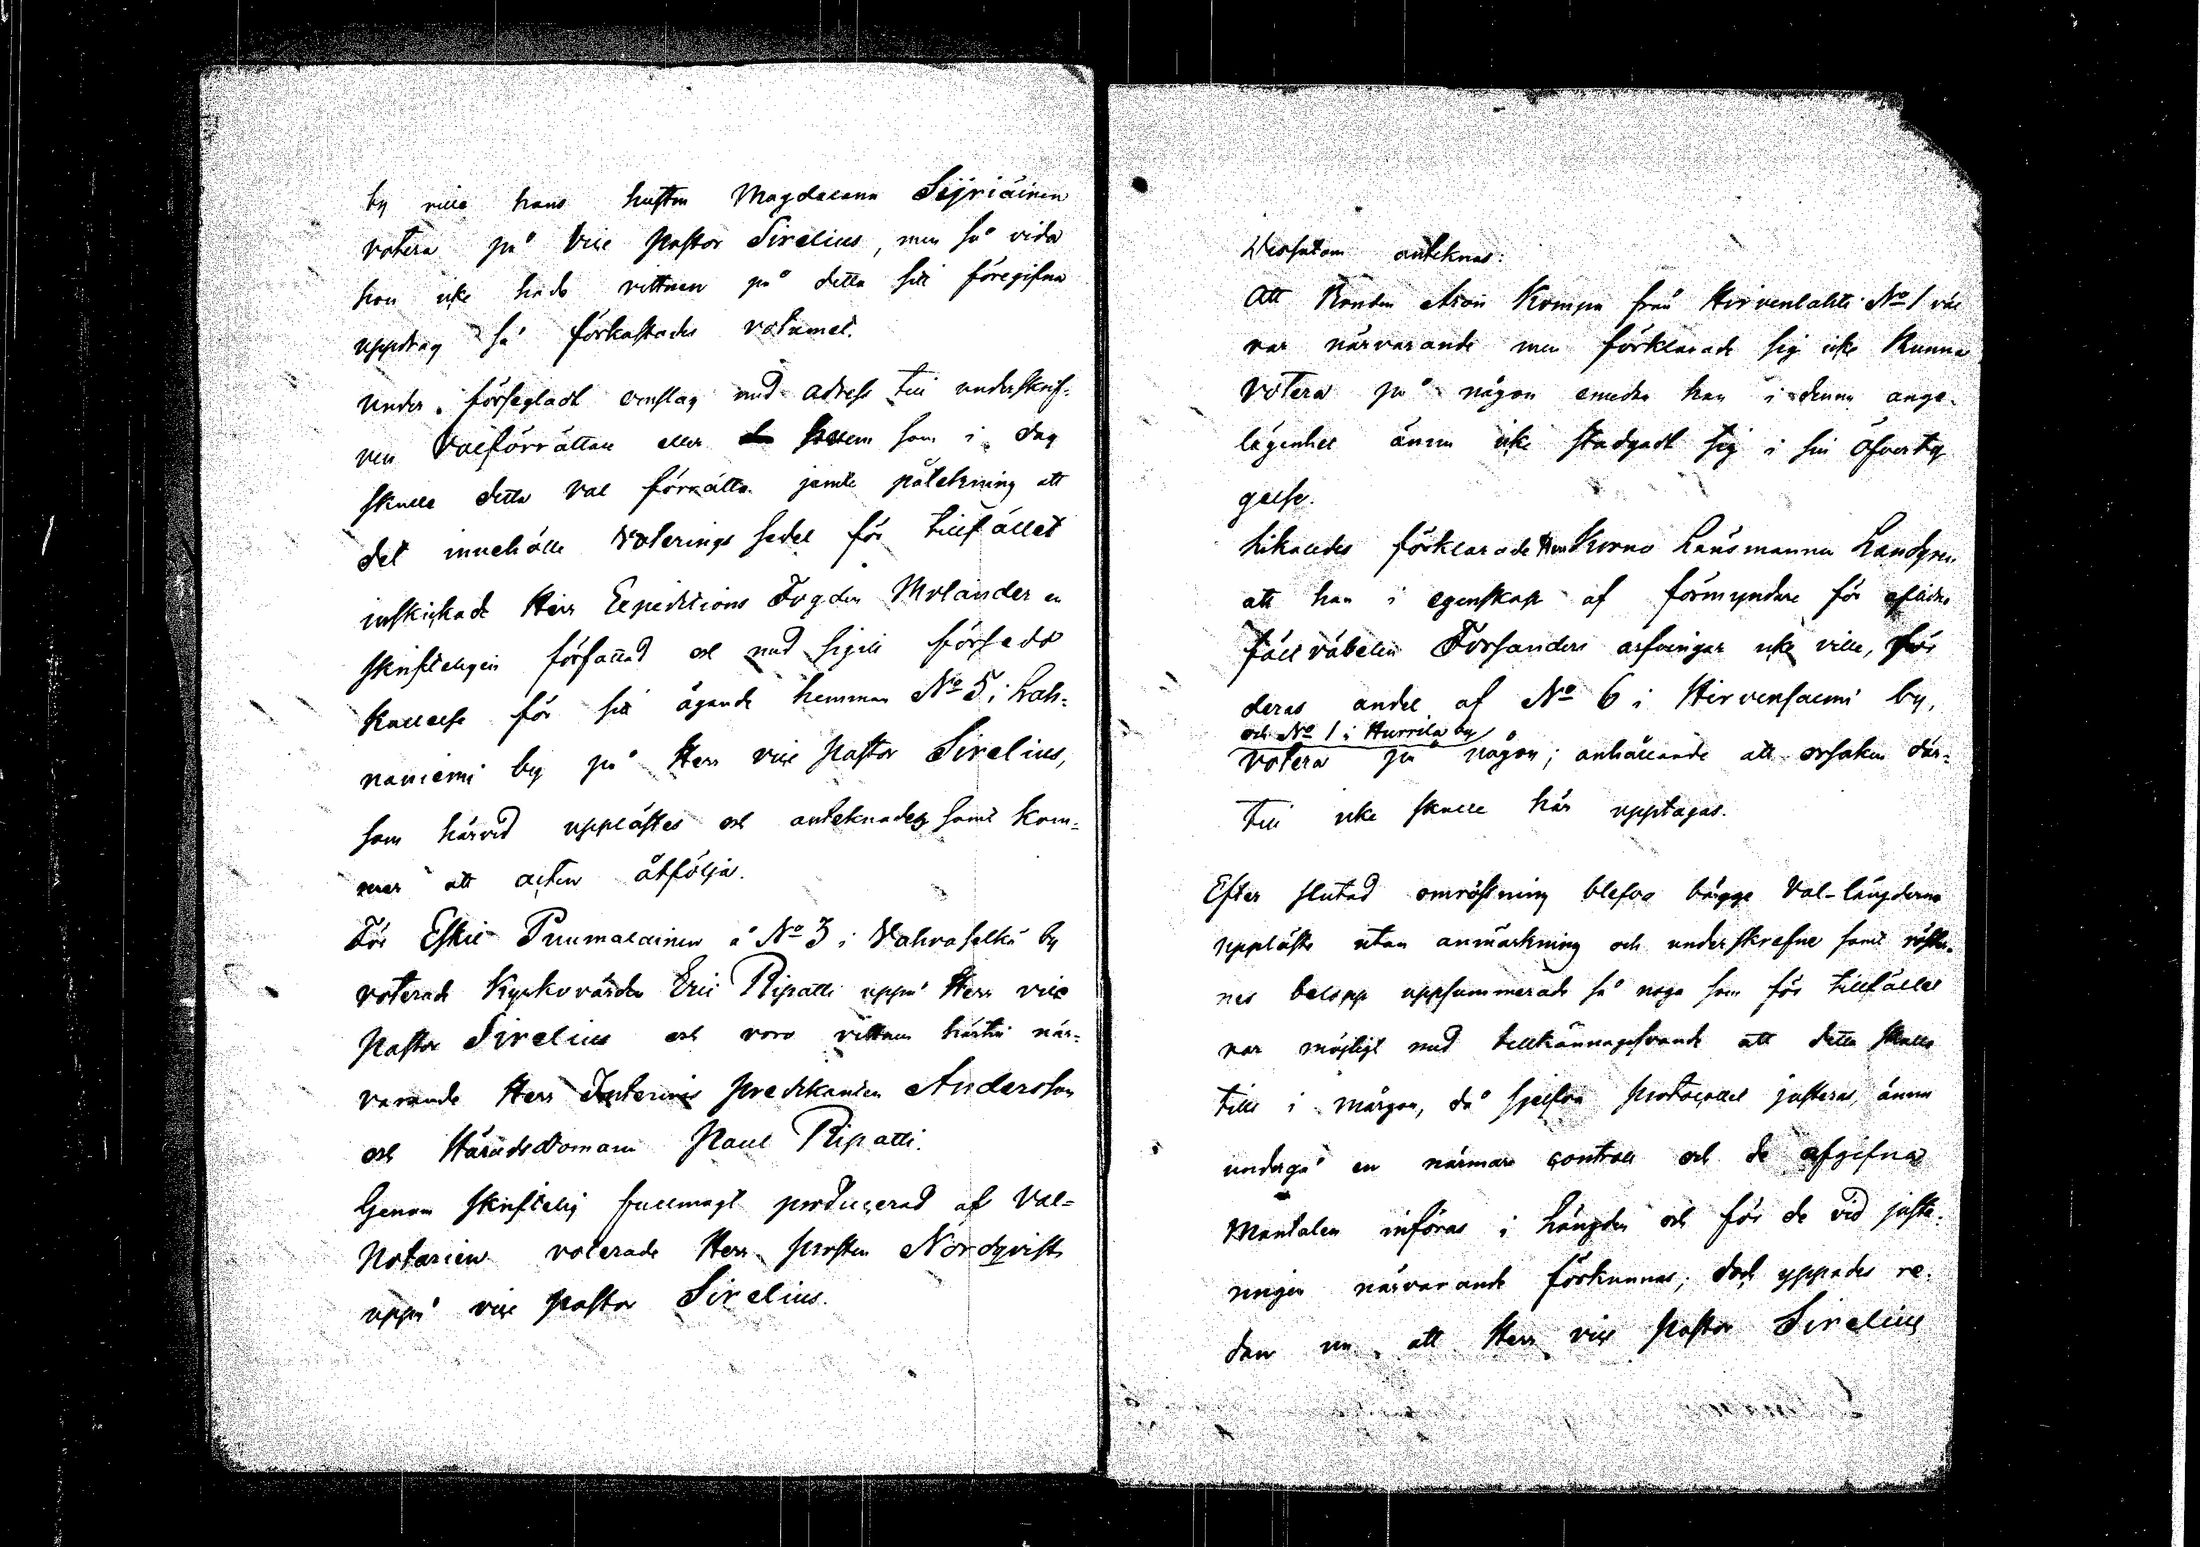 by ville hans hustru Magdalena Sijriäinen
votera på Vice Pastor Sirelius, men så vida
hon icke hade vittnen på detta sitt föregifna
uppdrag så förkastades votumet.
Under försegladt omslag med adress till underskrif-
ven Valförrättare eller hvem som i dag
skulle detta val förrätta jemte påtekning att
det innehölle Voterings sedel för tillfället
inskickade Herr Expeditions Fogden Molander en
skrifteligen författad och med sigill försedd
kallelse för sitt ägande hemman No 5 i Lah-
naniemi by på Herr vice Pastor Sirelius,
som härvid upplästes och anteknades samt kom-
mer att acten åtfölja.
För Eskil Puumalainen å No 3 i Vahvaselkä by
voterade Kyrkovärden Eric Ripatti uppå Herr vice
Pastor Sirelius och voro vittnen härtill när-
varande Herr Interims Predikanten Andersson
och Häradsdomaren Paul Ripatti.
Genom skriftelig fullmagt producerad af Val-
Notarien voterade Herr Prosten Nordqvist
uppå vice Pastor Sirelius.
Dessutom anteknas:
Att Bonden Kompa från Hirvenlahti No 1 väl
var närvarande men förklarade sig icke kunna
votera på någon emedan han i denna ange-
lägenhet ännu icke stadgadt sig i sin öfverty-
gelse.
Likaledes förklarade Herr Krono Länsmannen Landgren
att han i egenskap af förmyndare för aflidne
fältväbelen Forsanders arfvingar icke ville, för
deras andel af No 6 i Hirvensalmi by,
och No 1 i Hurrila by
votera på någon; anhållande att orsaken där-
till icke skulle här upptagas.
Efter slutad omröstning blefvo bägge Val-längderne
uppläste utan anmärkning och underskrefne samt röster-
nes belopp uppsummerade så noga som för tillfället
var möjligt med tillkännagifvande att detta skulle
till i mårgon, då sjelfva Protocollet justeras, ännu
undergå en närmare controll och de afgifna
Mantalen införas i längden och för de vid juste-
ringen närvarande förkunnas; doch yppades re-
dan nu att Herr vice Pastor Sirelius